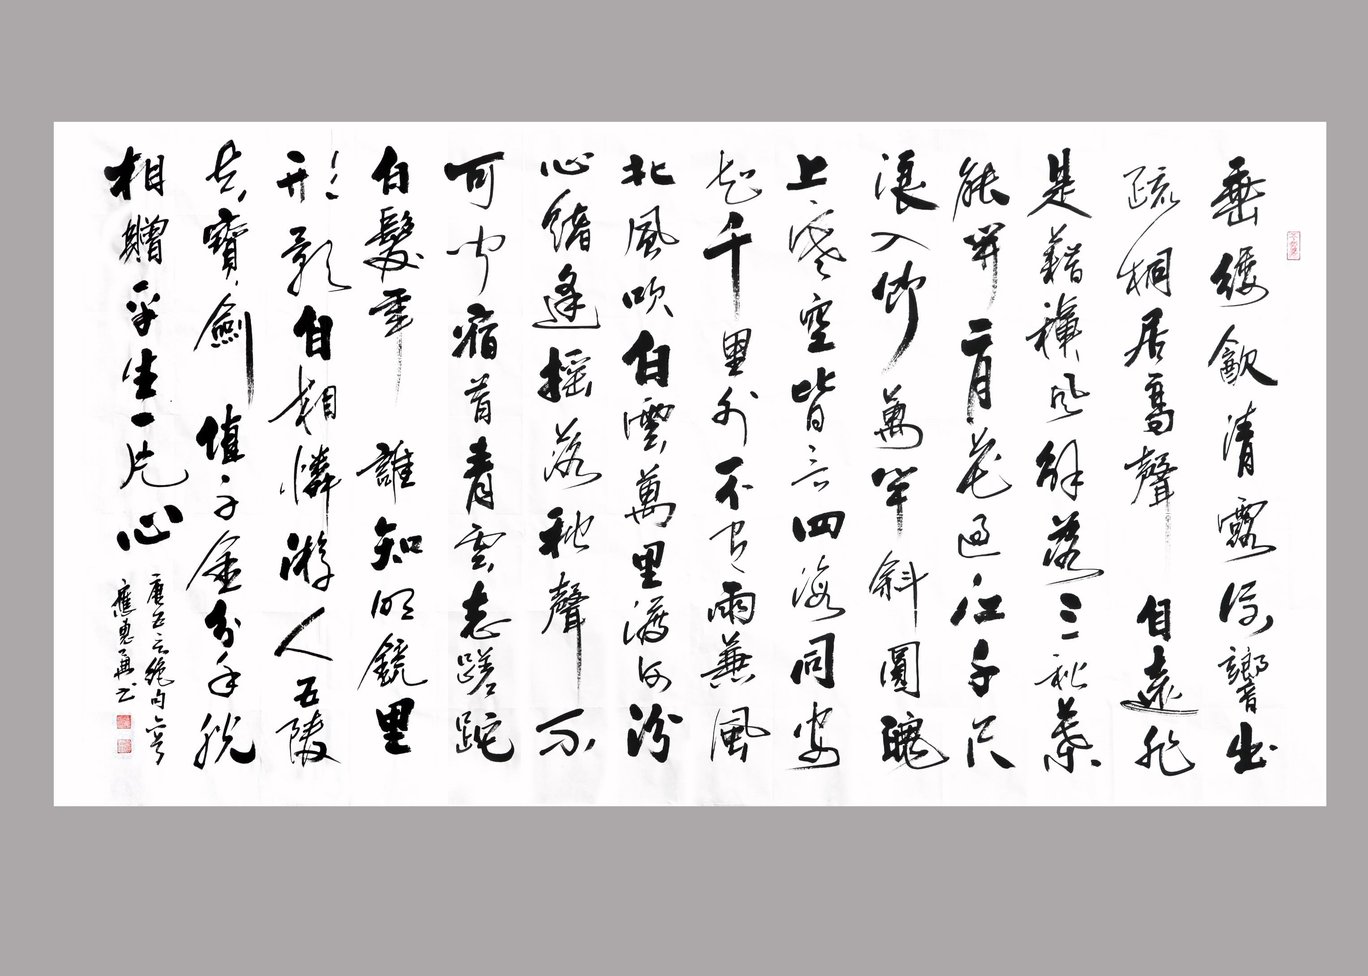 垂緌飲清露流響出
疏桐居高聲自遠非
是藉秋風解落三秋葉
能開二月花過江千尺
浪入竹萬竿斜圓魄
上寒空皆言四海同安
知千里外不有雨兼風
北風吹白雲萬里渡河汾
心緒逢搖落秋聲不
可聞宿昔青雲志蹉跎
白髮年誰知明鏡里
形影自相憐游人五陵
去寶劍值千金分手脫
相贈平生一片心
唐五言絕句六首